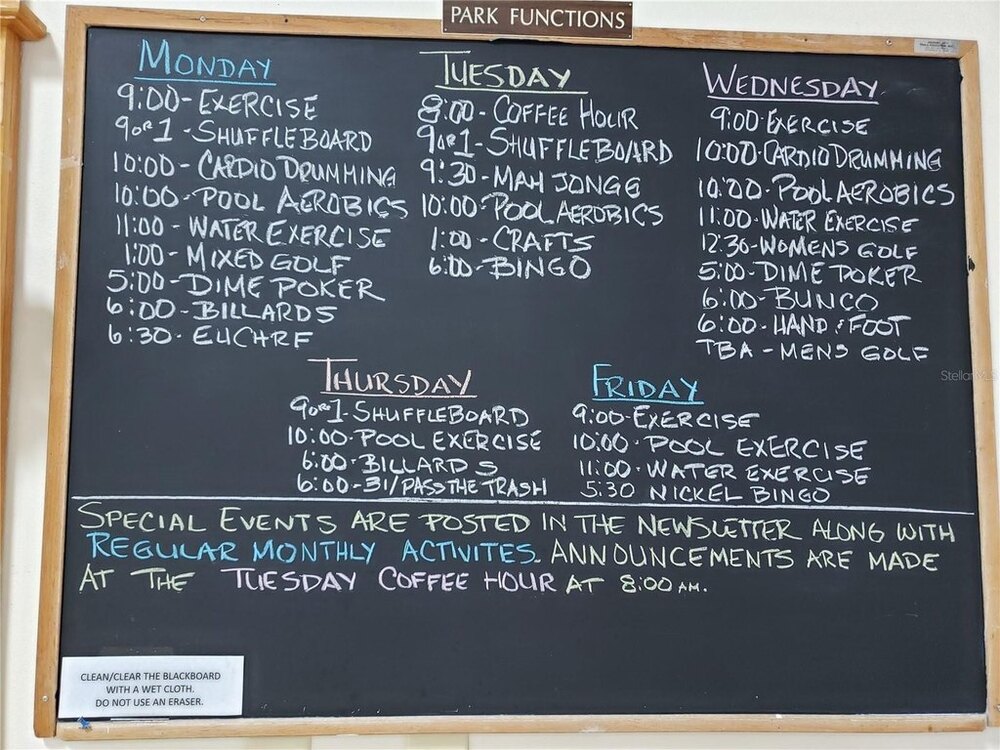 PARK FUNCTIONS
MONDAY
9:00-EXERCISE
9 or 1 - SHUFFLEBOARD
10:00 - CARDIO DRUMMING
10:00 - POOL AEROBICS
11:00 - WATER EXERCISE
1:00 - MIXED GOLF
5:00-DIME POKER
6:00-BILLARDS
6:30 - EUCHRE
TUESDAY
8:00 - COFFEE HOUR
9 or 1 - SHUFFLEBOARD
9:30 - MAH JONGG
10:00-POOL AEROBICS
1:00-CRAFTS
6:00-BINGO
WEDNESDAY
9:00 EXERCISE
10:00-CARDIO DRUMMING
10:00-POOL AEROBICS
11:00-WATER EXERCISE
12:30-WOMENS GOLF
5:00-DIME POKER
6:00-BUNCO
6:00-HAND & FOOT
TBA - MENS GOLF
THURSDAY
9 or 1-SHUFFLEBOARD
10:00-POOL EXERCISE
6:00-BILLARDS
6:00-31/PASS THE TRASH
FRIDAY
9:00-EXERCISE
10:00 - POOL EXERCISE
11:00 - WATER EXERCISE
5:30 NICKEL BINGO
SPECIAL EVENTS ARE POSTED IN THE NEWSLETTER ALONG WITH
REGULAR MONTHLY ACTIVITES. ANNOUNCEMENTS ARE MADE
AT THE TUESDAY COFFEE HOUR AT 8:00 AM.
CLEAN/CLEAR THE BLACKBOARD
WITH A WET CLOTH.
DO NOT USE AN ERASER.
StellarMLS